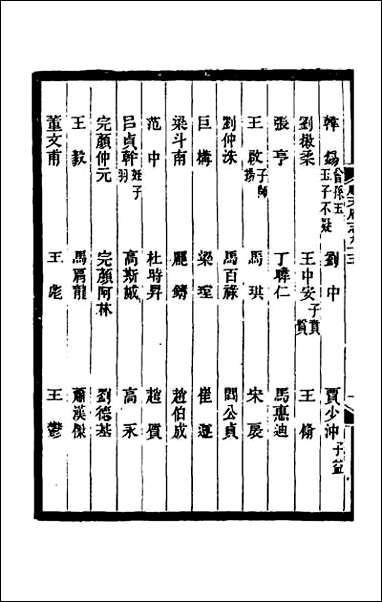 韓錫 曾孫玉 玉子不疑 劉中 賈少沖 子益
劉徽柔 王中安 子賁 王脩
張亨 丁暐仁 馬惠迪
王啟 子師揚 馬琪 宋扆
劉仲洙 馬百祿 閻公貞
巨構 梁瑝 崔遵
梁斗南 龐鑄 趙伯成
范中 杜時昇 趙質
呂貞幹 姪子羽 高斯誠 高永
完顏仲元 完顏阿林 劉德基
王毅 馬肩龍 蕭漢傑
董文甫 王彪 王鬱